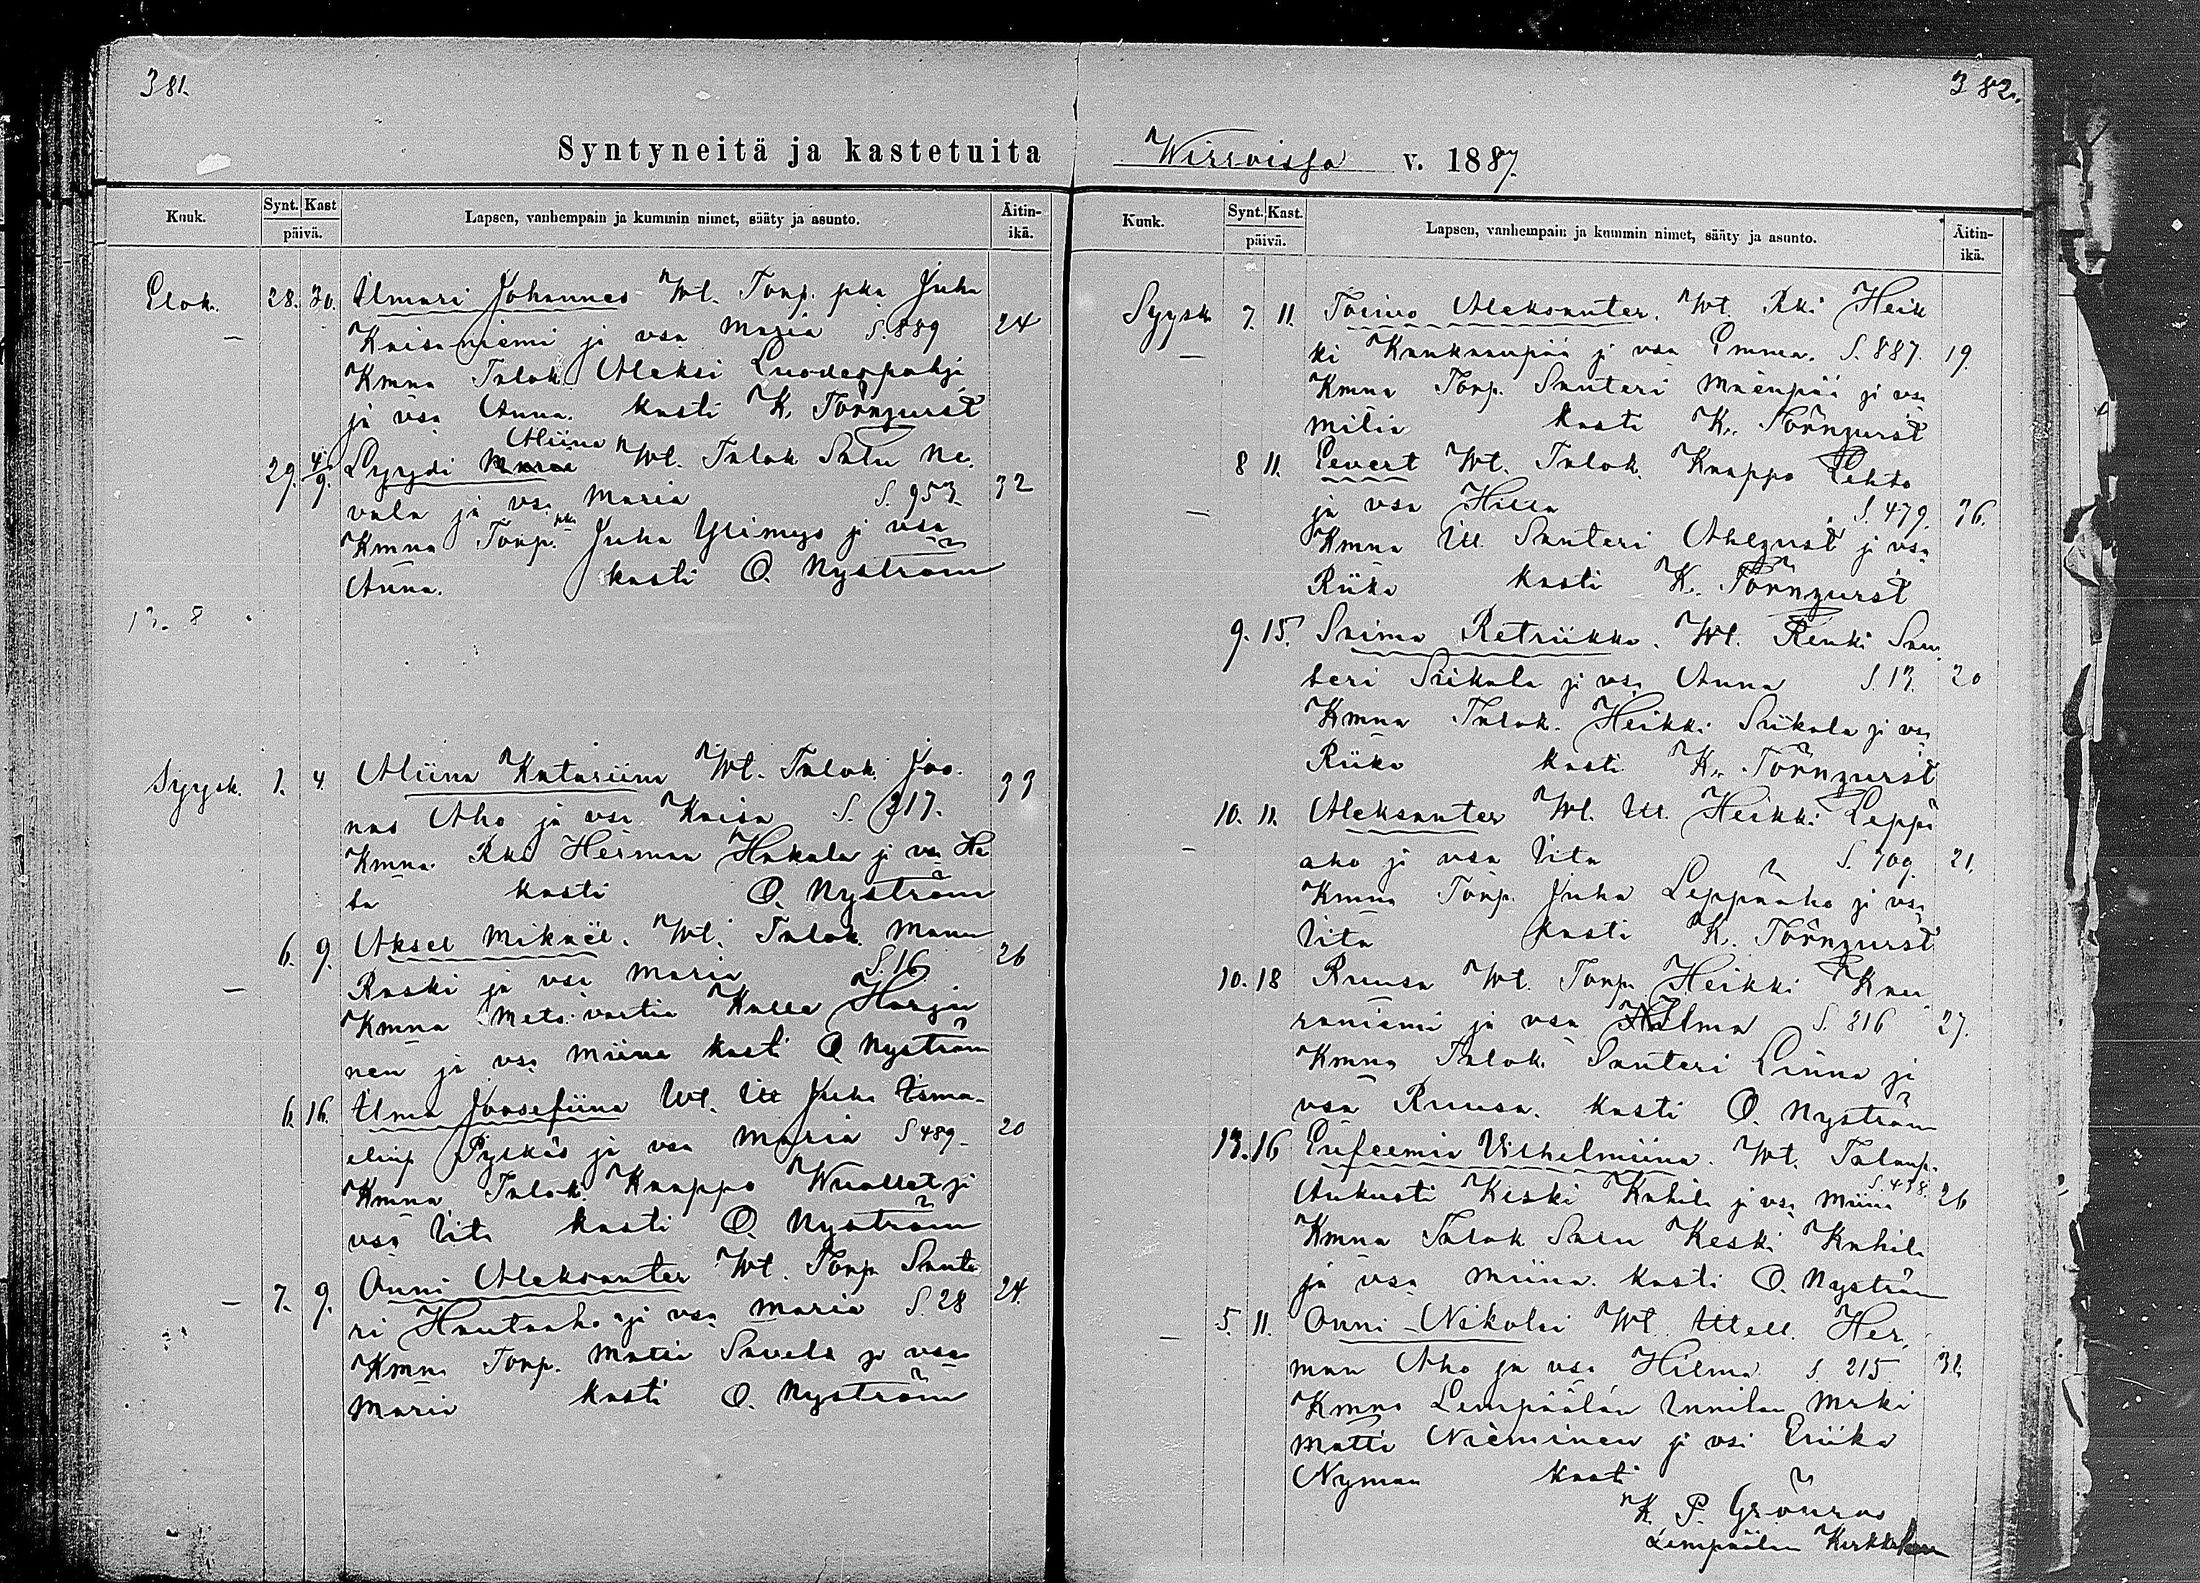 381.
Syntyneitä ja kastetuita
Kuuk. Synt. Kast päivä. Lapsen, vanhempain ja kummin nimet, sääty ja asunto. Äitin-ikä.
Elok. 28. 30. Ilmari Johannes Wt. Torp. pka Juha
Kaisaniemi ja vsa Maria S. 889 24
Kmna Talok. Aleksi Luodespohja
ja vsa Anna. kasti K. Törnqvist
Aliina
29. 4/9. Lyydi Maria Wt. Talok Salu Ne-
vala ja vsa Maria S. 953. 32
Kmna Torp. pka Juha Ylimys ja vsa
Anna. kasti O. Nyström
13. 8
Syysk. 1. 4. Aliina Katariina Wt. Talok. Joo-
nas Aho ja vsa Kaisa S. 217. 33
Kmna Rki Herman Hakala ja vsa He
ta kasti O. Nyström
6. 9. Aksel Mikael. Wt. Talok. Manu
Raski ja vsa Maria S. 16 26
Kmna Metsävartia Kalle Harju
nen ja vsa Miina kasti O. Nyström
6. 16. Ilma Joosefiina Wt. Itl Juha Isma-
elinp Pyskäs ja vsa Maria S 489. 20
Kmna Talok. Kaappo Wuollet ja
vsa Vita kasti O. Nyström
— 7. 9. Onni Aleksanter Wt. Torp. Sante
ri Hautaaho ja vsa Maria S. 28 24.
Kmna Torp. Matti Savela ja vsa
Maria kasti O. Nyström
382.
Wirroissa v. 1887.
Kuuk. Synt. Kast. päivä. Lapsen, vanhempain ja kummin nimet, sääty ja asunto. Äitin-ikä.
Syysk 7. 11. Toimo Aleksanter. Wt. Rki Heik
ki Kankaanpää ja vsa Emma. S. 887. 19.
Kmna Torp. Santeri Mäenpää ja vsa
Milia kasti K. Törnqvist
8 11. Eevert Wt. Talok. Kaappo Lehto
ja vsa Hilta S. 479. 36.
Kmna Itl Santeri Ahlqvist ja vsa
Riika kasti K. Törnqvist
9. 15. Saima Retriikka. Wt. Renki San-
teri Siikala ja vsa Anna S. 13. 20
Kmna Talok. Heikki Siikala ja vsa
Riika kasti K. Törnqvist
10. 11. Aleksanter Wt. Itl. Heikki Leppä
aho ja vsa Vita S. 709. 21.
Kmna Torp. Juha Leppäaho ja vsa
Vita kasti K. Törnqvist
10. 18 Ruusa Wt. Torp. Heikki Kau-
raniemi ja vsa Hilma S. 816 27.
Kmna Talok. Santeri Linna ja
vsa Ruusa. kasti O. Nyström
13. 16 Eufeemia Vilhelmiina. Wt. Talonp.
Aukusti Keski Kahila ja vsa Miina S. 478. 26
Kmna Talok Salu Keski Kahila
ja vsa Miina. kasti O. Nyström
— 5. 11. Onni Nikolai Wt. Itell. Her-
man Aho ja vsa Hilma S. 215 31.
Kmna Lempäälän Innilan Mrki
Matti Nieminen ja vsa Eriika
Nyman kasti
K. P. Grönroos
Lempäälän Kirkkoherra